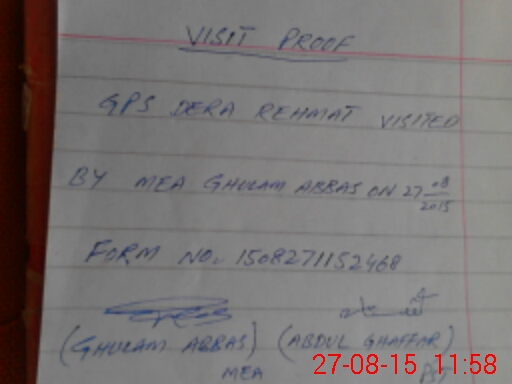 VISIT PROOF
GPS DERA REHMAT VISITED
BY MEA GHULAM ABBAS ON 27 08/2015
FORM NO. 1508271152468
(GHULAM ABBAS) (ABDUL GHAFFAR)
MEA PST
27-08-15 11:58